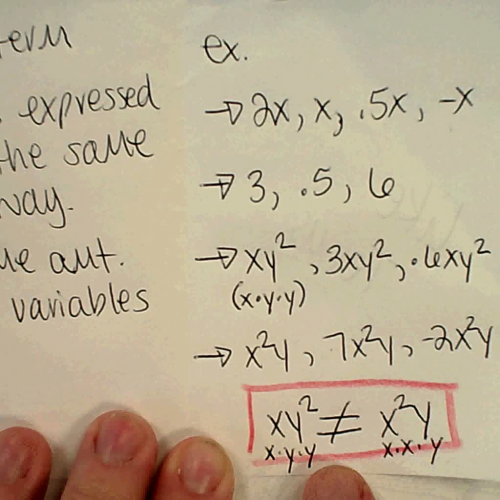 erm
expressed
the same
way.
ue amt.
variables
ex.
→ 2x, x, .5x, -x
→ 3, .5, 6
→ xy², 3xy², .6xy²
(x·y·y)
→ x²y, 7x²y, -2x²y
xy² ≠ x²y
x·y·y x·x·y